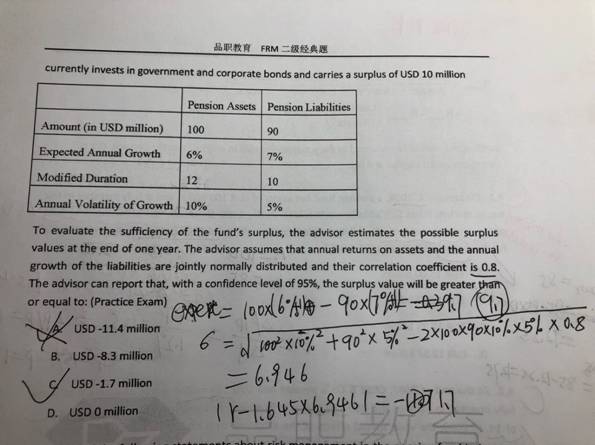 品职教育 FRM 二级经典题
currently invests in government and corporate bonds and carries a surplus of USD 10 million
Pension Assets Pension Liabilities
Amount (in USD million) 100 90
Expected Annual Growth 6% 7%
Modified Duration 12 10
Annual Volatility of Growth 10% 5%
To evaluate the sufficiency of the fund's surplus, the advisor estimates the possible surplus
values at the end of one year. The advisor assumes that annual returns on assets and the annual
growth of the liabilities are jointly normally distributed and their correlation coefficient is 0.8.
The advisor can report that, with a confidence level of 95%, the surplus value will be greater than
or equal to: (Practice Exam)
= 100×(6% - 90×(7% = 9.7 (9.7)
A. USD -11.4 million
6 = √100²×10%²+90²×5%²-2×100×90×10%×5%×0.8
B. USD -8.3 million
= 6.946
C. USD -1.7 million
-1.645×6.946| = - 1.7
D. USD 0 million